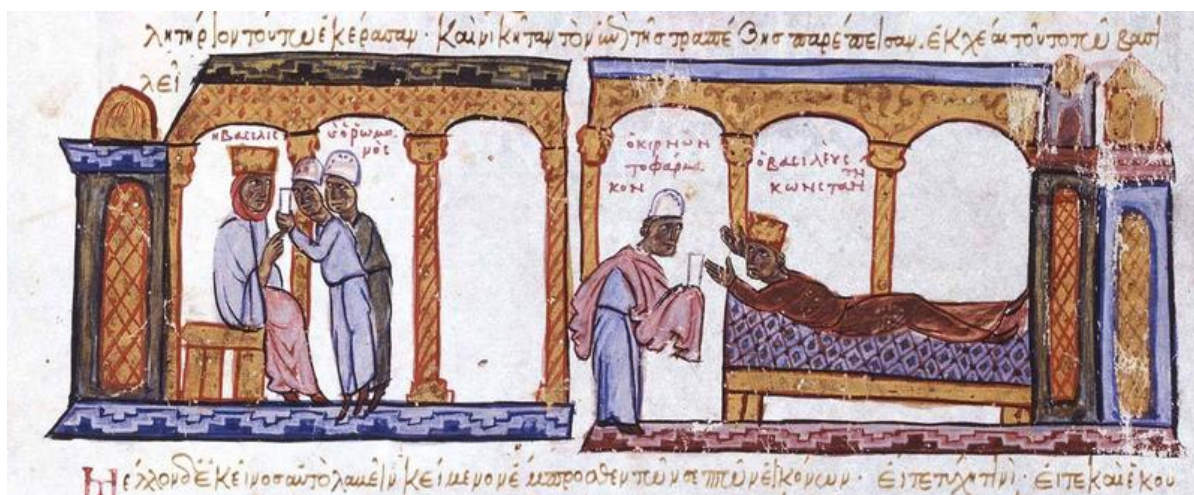 λητήριον τούτω ἐκέρασαν· Καὶ νικήταν τὸν τῆς τραπέζης παρέπεισαν. ἐκχέαι τοῦτο τῶ βασι
λεῖ
ἡ βασιλὶς
ὁ ῥωμα
νός
ὁ κιρνῶν
τὸ φάρμα
κον
ὁ βασιλεὺς
κωνσταν
τῖν
δὲ ἐκεῖνος αὐτὸ λαβεῖν κείμενον ἔμπροσθεν τῶν σεπτῶν εἰκόνων· εἴτε εἴτε καὶ ἑκου